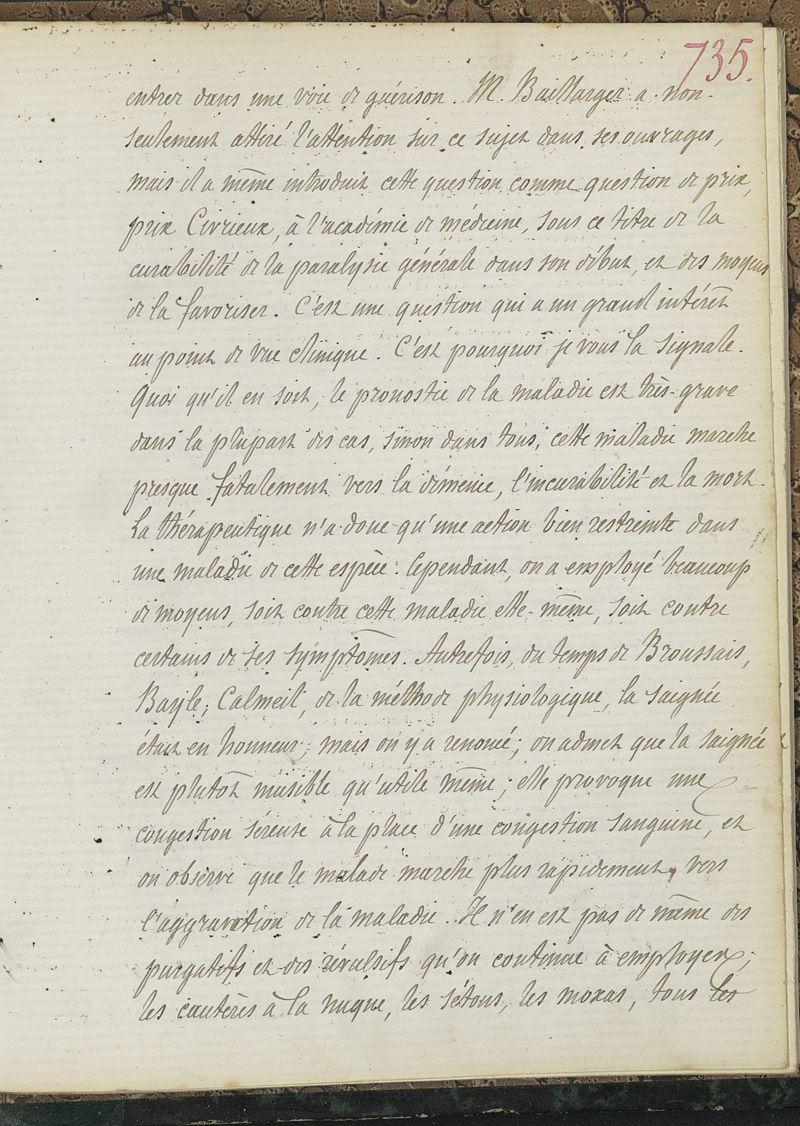 735.
entrer dans une voie de guérison. M. Baillarger a non-
seulement attiré l'attention sur ce sujet dans ses ouvrages,
mais il a même introduit cette question comme question de prix,
prix Civrieux, à l'académie de médecine, sous ce titre de la
curabilité de la paralysie générale dans son début, et des moyens
de la favoriser. C'est une question qui a un grand intérêt
au point de vue clinique. C'est pourquoi je vous la signale.
Quoi qu'il en soit, le pronostic de la maladie est très-grave
dans la plupart des cas, sinon dans tous, cette maladie marche
presque fatalement vers la démence, l'incurabilité et la mort.
La thérapeutique n'a donc qu'une action bien restreinte dans
une maladie de cette espèce. Cependant, on a employé beaucoup
de moyens, soit contre cette maladie elle-même, soit contre
certains de ses symptômes. Autrefois, du temps de Broussais,
Bayle, Calmeil, de la méthode physiologique, la saignée
était en honneur; mais on y a renoncé; on admet que la saignée
est plutôt nuisible qu'utile même; elle provoque une
congestion séreuse à la place d'une congestion sanguine, et
on observe que le malade marche plus rapidement, vers
l'aggravation de la maladie. Il n'en est pas de même des
purgatifs et des révulsifs qu'on continue à employer;
les cautères à la nuque, les sétons, les moxas, tous les